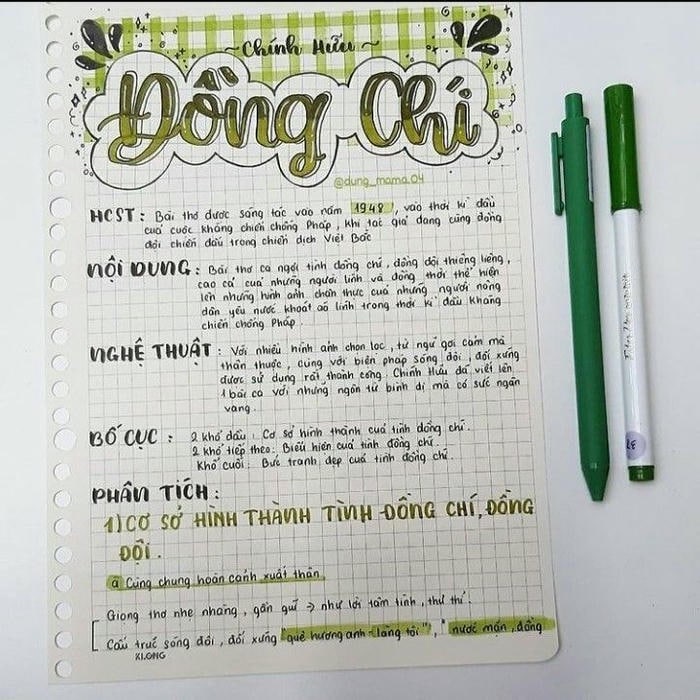 ~ Chính Hữu ~
Đồng Chí
@dung_mama.04
HCST: Bài thơ được sáng tác vào năm 1948, vào thời kì đầu
của cuộc kháng chiến chống Pháp, khi tác giả đang cùng đồng
đội chiến đấu trong chiến dịch Việt Bắc
NỘI DUNG: Bài thơ ca ngợi tình đồng chí, đồng đội thiêng liêng,
cao cả của những người lính và đồng thời thể hiện
lên những hình ảnh chân thực của những người nông
dân yêu nước khoát áo lính trong thời kì đầu kháng
chiến chống Pháp.
NGHỆ THUẬT: Với nhiều hình ảnh chọn lọc, từ ngữ gợi cảm mà
thân thuộc, cùng với biện pháp sóng đôi, đối xứng
được sử dụng rất thành công. Chính Hữu đã viết lên
1 bài ca với những ngôn từ bình dị mà có sức ngân
vang.
BỐ CỤC: 2 khổ đầu: Cơ sở hình thành của tình đồng chí.
2 khổ tiếp theo: Biểu hiện của tình đồng chí.
Khổ cuối: Bức tranh đẹp của tình đồng chí.
PHÂN TÍCH:
1) CƠ SỞ HÌNH THÀNH TÌNH ĐỒNG CHÍ, ĐỒNG
ĐỘI.
a Cùng chung hoàn cảnh xuất thân
Giọng thơ nhẹ nhàng, gần gũi → như lời tâm tình, thủ thỉ.
Cấu trúc sóng đôi, đối xứng "quê hương anh - làng tôi", "nước mặn, đồng
KLONG